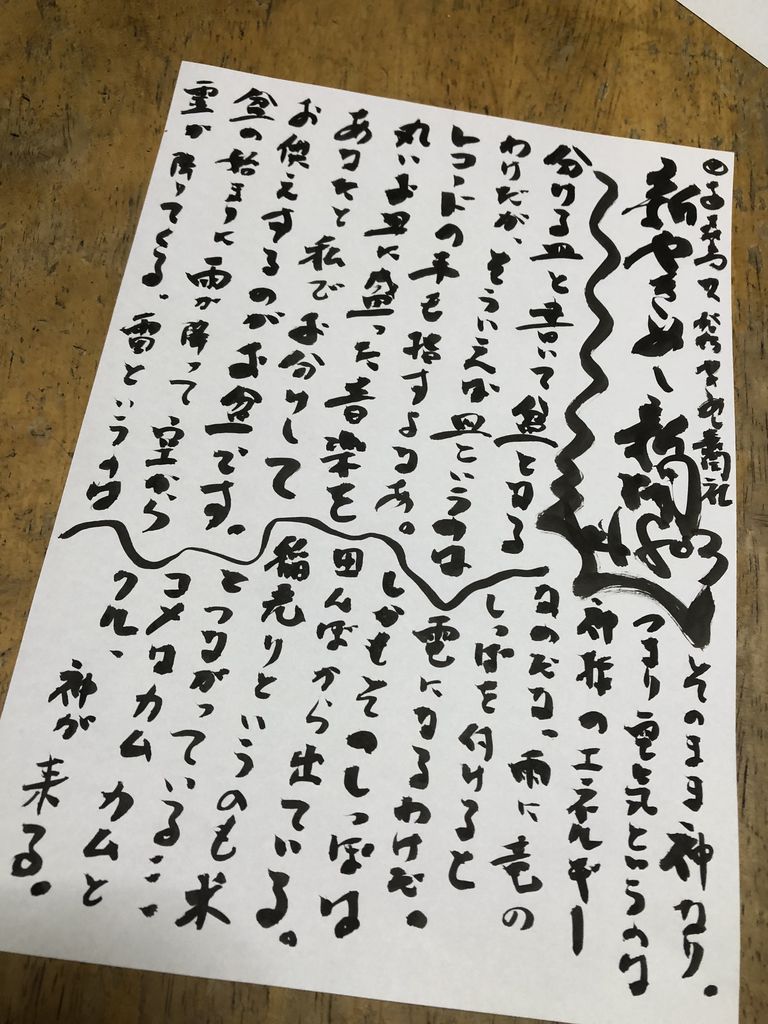 新やきめし新聞
分ける皿と書いて盆となる
わけだが、そういえば皿というのは
レコードの事も指すよなあ。
丸いお皿に盛った音楽を
あなたと私でお分けして
お供えするのがお盆です。
盆の始まりに雨が降って空から
霊が降りてくる。雷というのは
そのまま神なり。
つまり電気というのは
神様のエネルギー
なのだな、雨に竜の
しっぽを付けると
電になるわけぞ。
しかもそのしっぽは
田んぼから出ている。
稲光りというのも米
とつながっているここ、
コメはカムカムと
クル、神が来る。